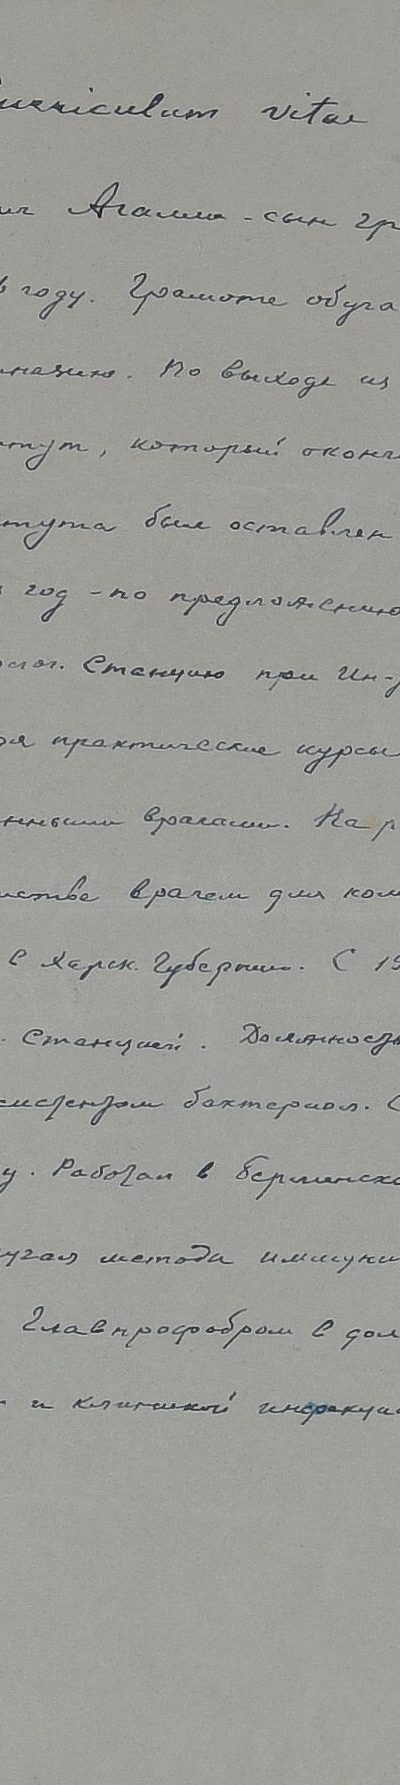 Curriculum vitae
Агалли - сын гр
в году. Грамоте обуча
мназию. По выходе из
тут, который оконч
тута был оставлен
год - по предложению
Станцию при Ин-
практические курсы
нными врачами. На р
врачем для ком
в Херск. Губернии. С 19
Станцией. Должность
ссистентом бактериол. С
у. Работал в Берлинско
учал методы иммуни
Главпрофобром в дол
и клиникой инфекци